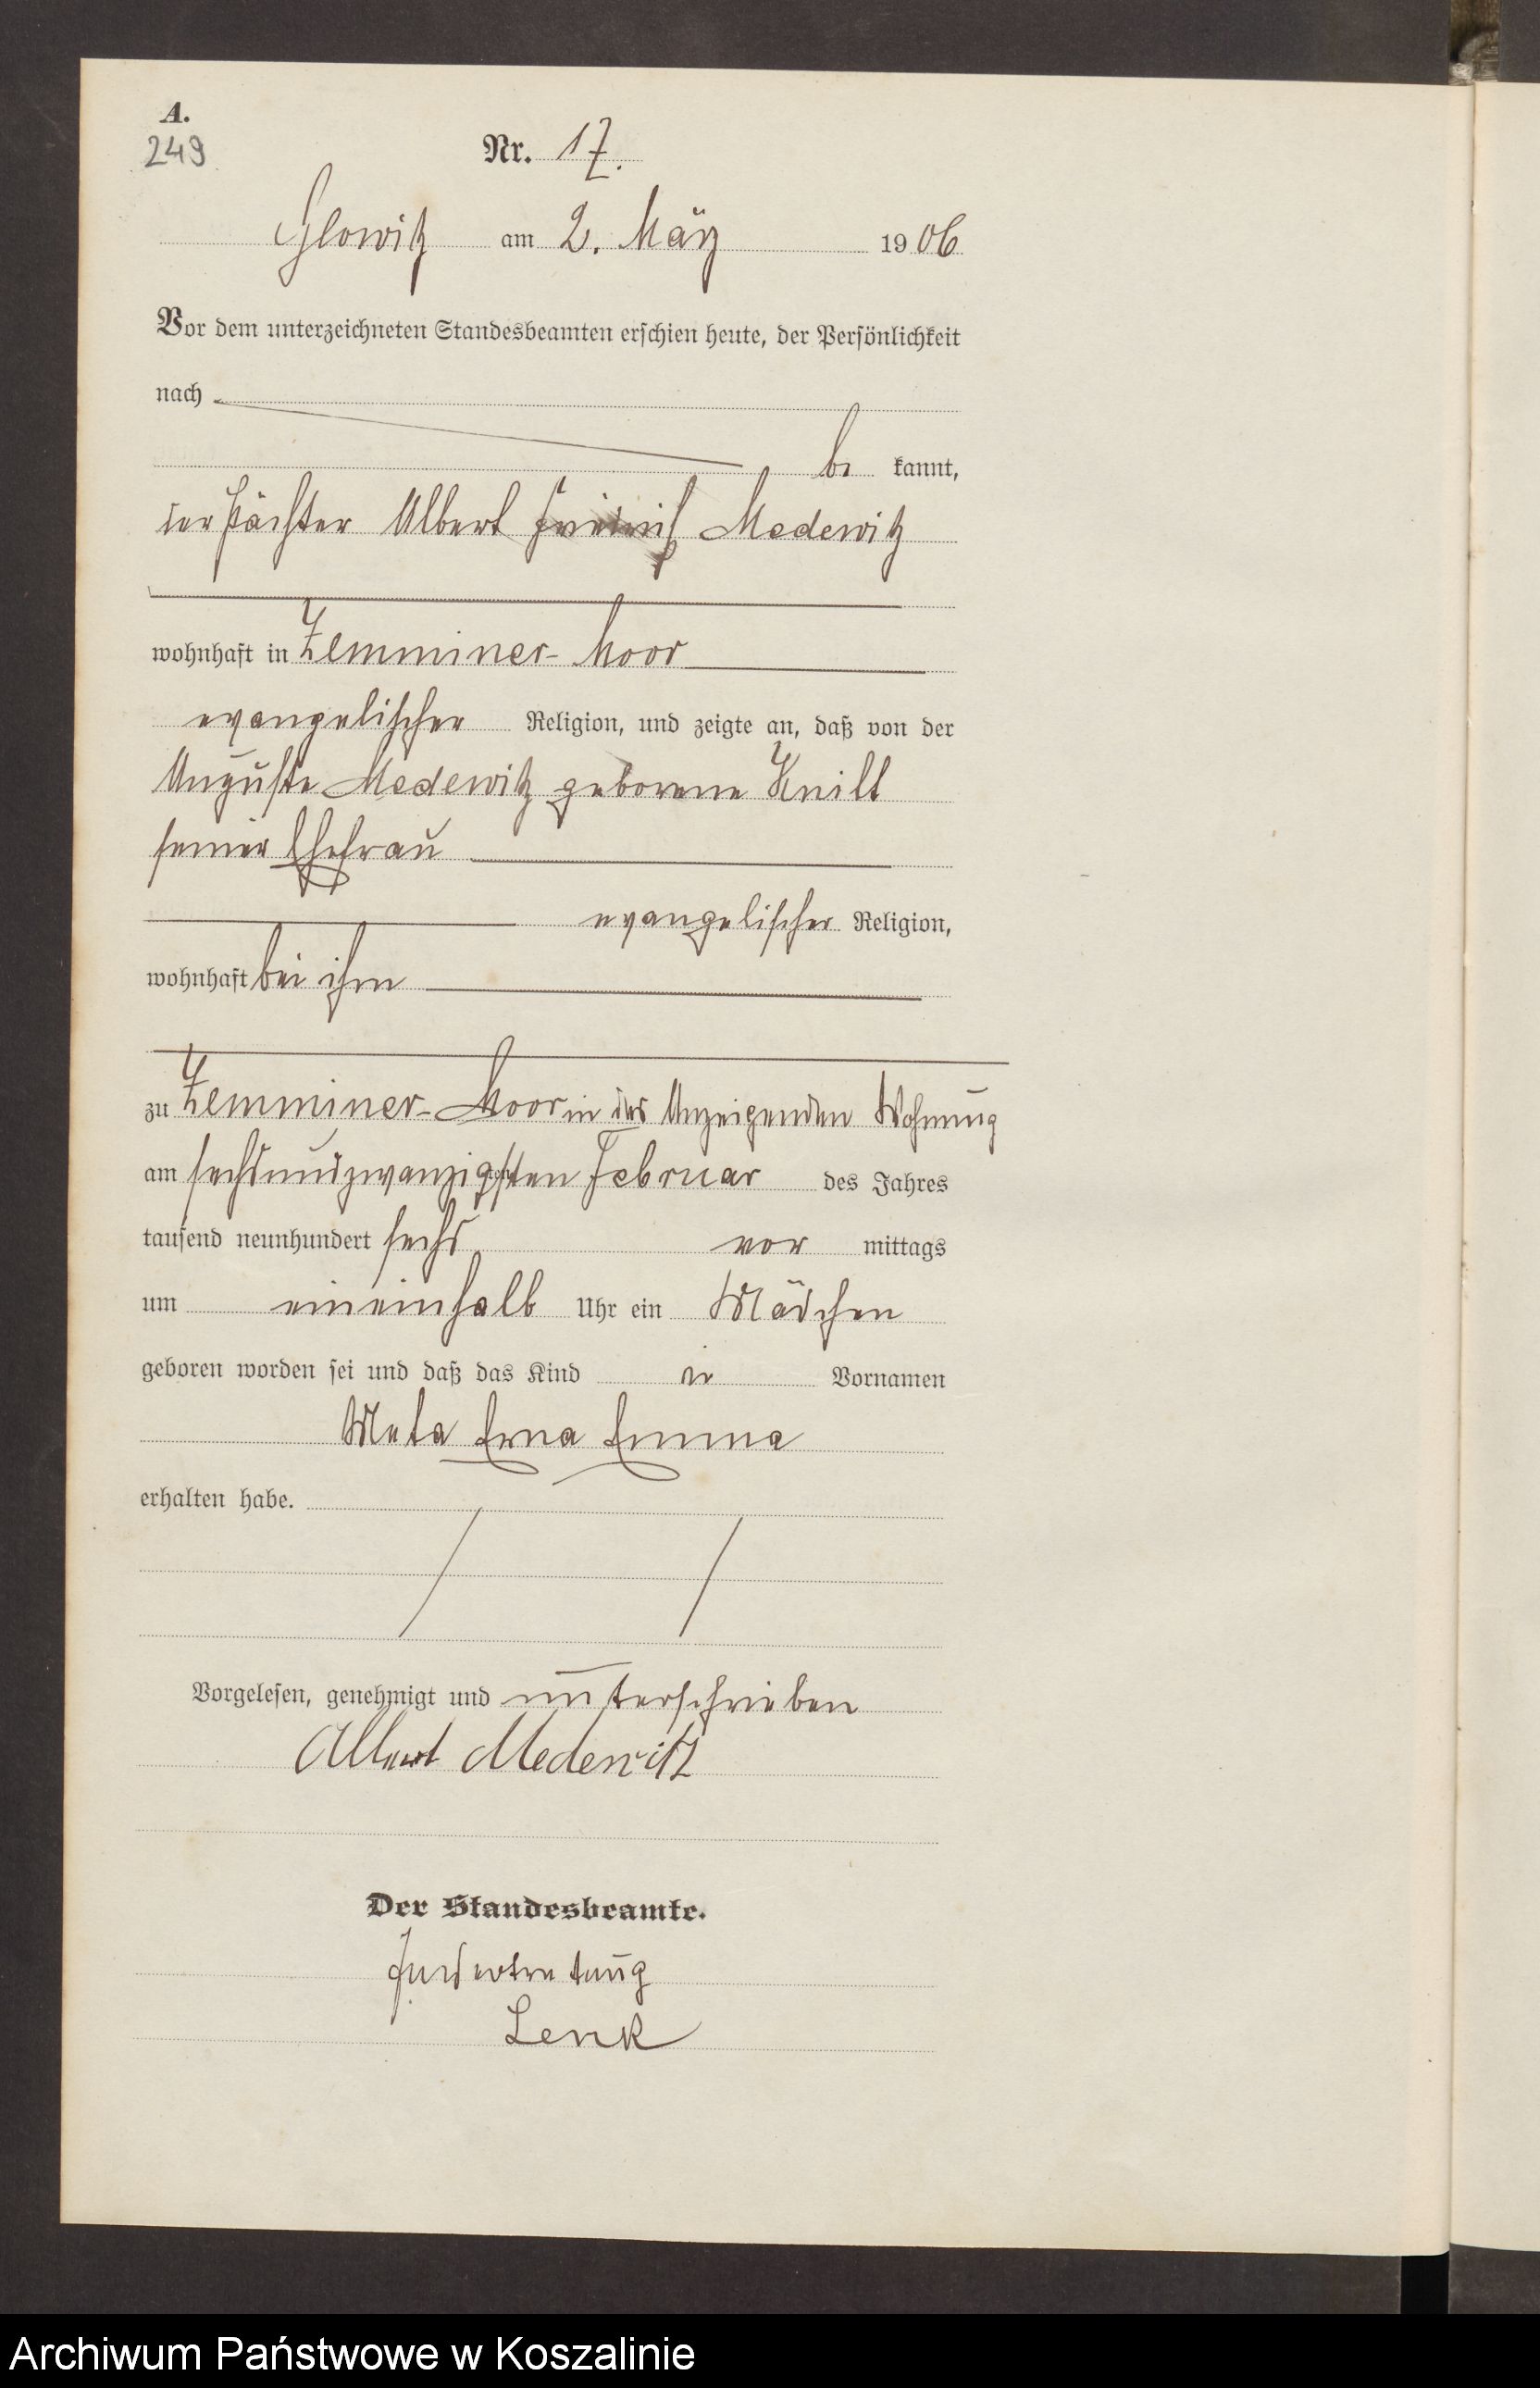 A.
249
Nr. 17.
Glowitz am 2. März 1906
Vor dem unterzeichneten Standesbeamten erschien heute, der Persönlichkeit
nach
be kannt,
der Pächter Albert Friedrich Medewitz
wohnhaft in Zemminer-Moor
evangelischer Religion, und zeigte an, daß von der
Auguste Medewitz geborene
seiner Ehefrau
evangelischer Religion,
wohnhaft bei ihm
zu Zemminer-Moor in des Anzeigenden Wohnung
am sechsundzwanzigsten Februar des Jahres
tausend neunhundert sechs vor mittags
um eineinhalb Uhr ein Mädchen
geboren worden sei und daß das Kind die Vornamen
Meta Erna Emma
erhalten habe.
Vorgelesen, genehmigt und unterschrieben
Albert Medewitz
Der Standesbeamte.
In Vertretung
Lenk
Archiwum Państwowe w Koszalinie